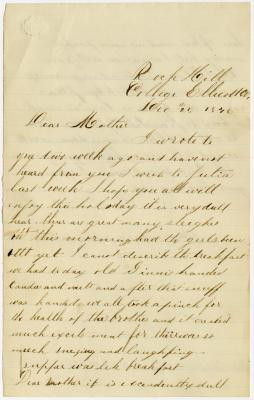 Rock Hill
College Ellicott City
Dec 26 1876
Dear Mother
I wrote to
you two week ago and have not
heard from you I wrote to Julia
last week I hope you all will
enjoy this holoday it is very dull
hear thyar are great many sleighs
out this morning had the girls been
out yet I canot describe the breakfast
we had to day old Ginnie handed
and after that snuff
was handed we all took a pinch for
the health of the brother and it caused
much excitement for thir was so
much sneezing and laughfing
supper was lik breakfast
Dear mother it is excendently dull